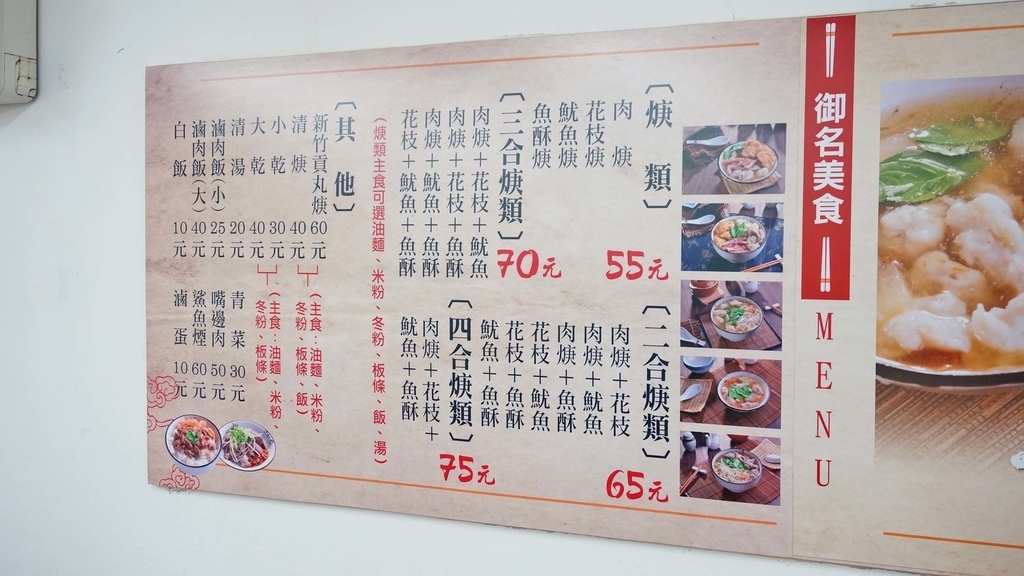 御名美食
MENU
〔焿類〕
肉焿
花枝焿
魷魚焿
魚酥焿
55元
〔二合焿類〕
肉焿＋花枝
肉焿＋魷魚
肉焿＋魚酥
花枝＋魷魚
花枝＋魚酥
魷魚＋魚酥
65元
〔三合焿類〕
肉焿＋花枝＋魷魚
肉焿＋花枝＋魚酥
肉焿＋魷魚＋魚酥
花枝＋魷魚＋魚酥
70元
〔四合焿類〕
肉焿＋花枝＋
魷魚＋魚酥
75元
(焿類主食可選油麵、米粉、冬粉、板條、飯、湯)
〔其他〕
新竹貢丸焿 60元
清焿 40元
(主食:油麵、米粉、
冬粉、板條、飯)
小乾 30元
大乾 40元
(主食:油麵、米粉、
冬粉、板條)
清湯 20元
滷肉飯(小) 25元
滷肉飯(大) 40元
白飯 10元
青菜 30元
嘴邊肉 50元
鯊魚煙 60元
滷蛋 10元